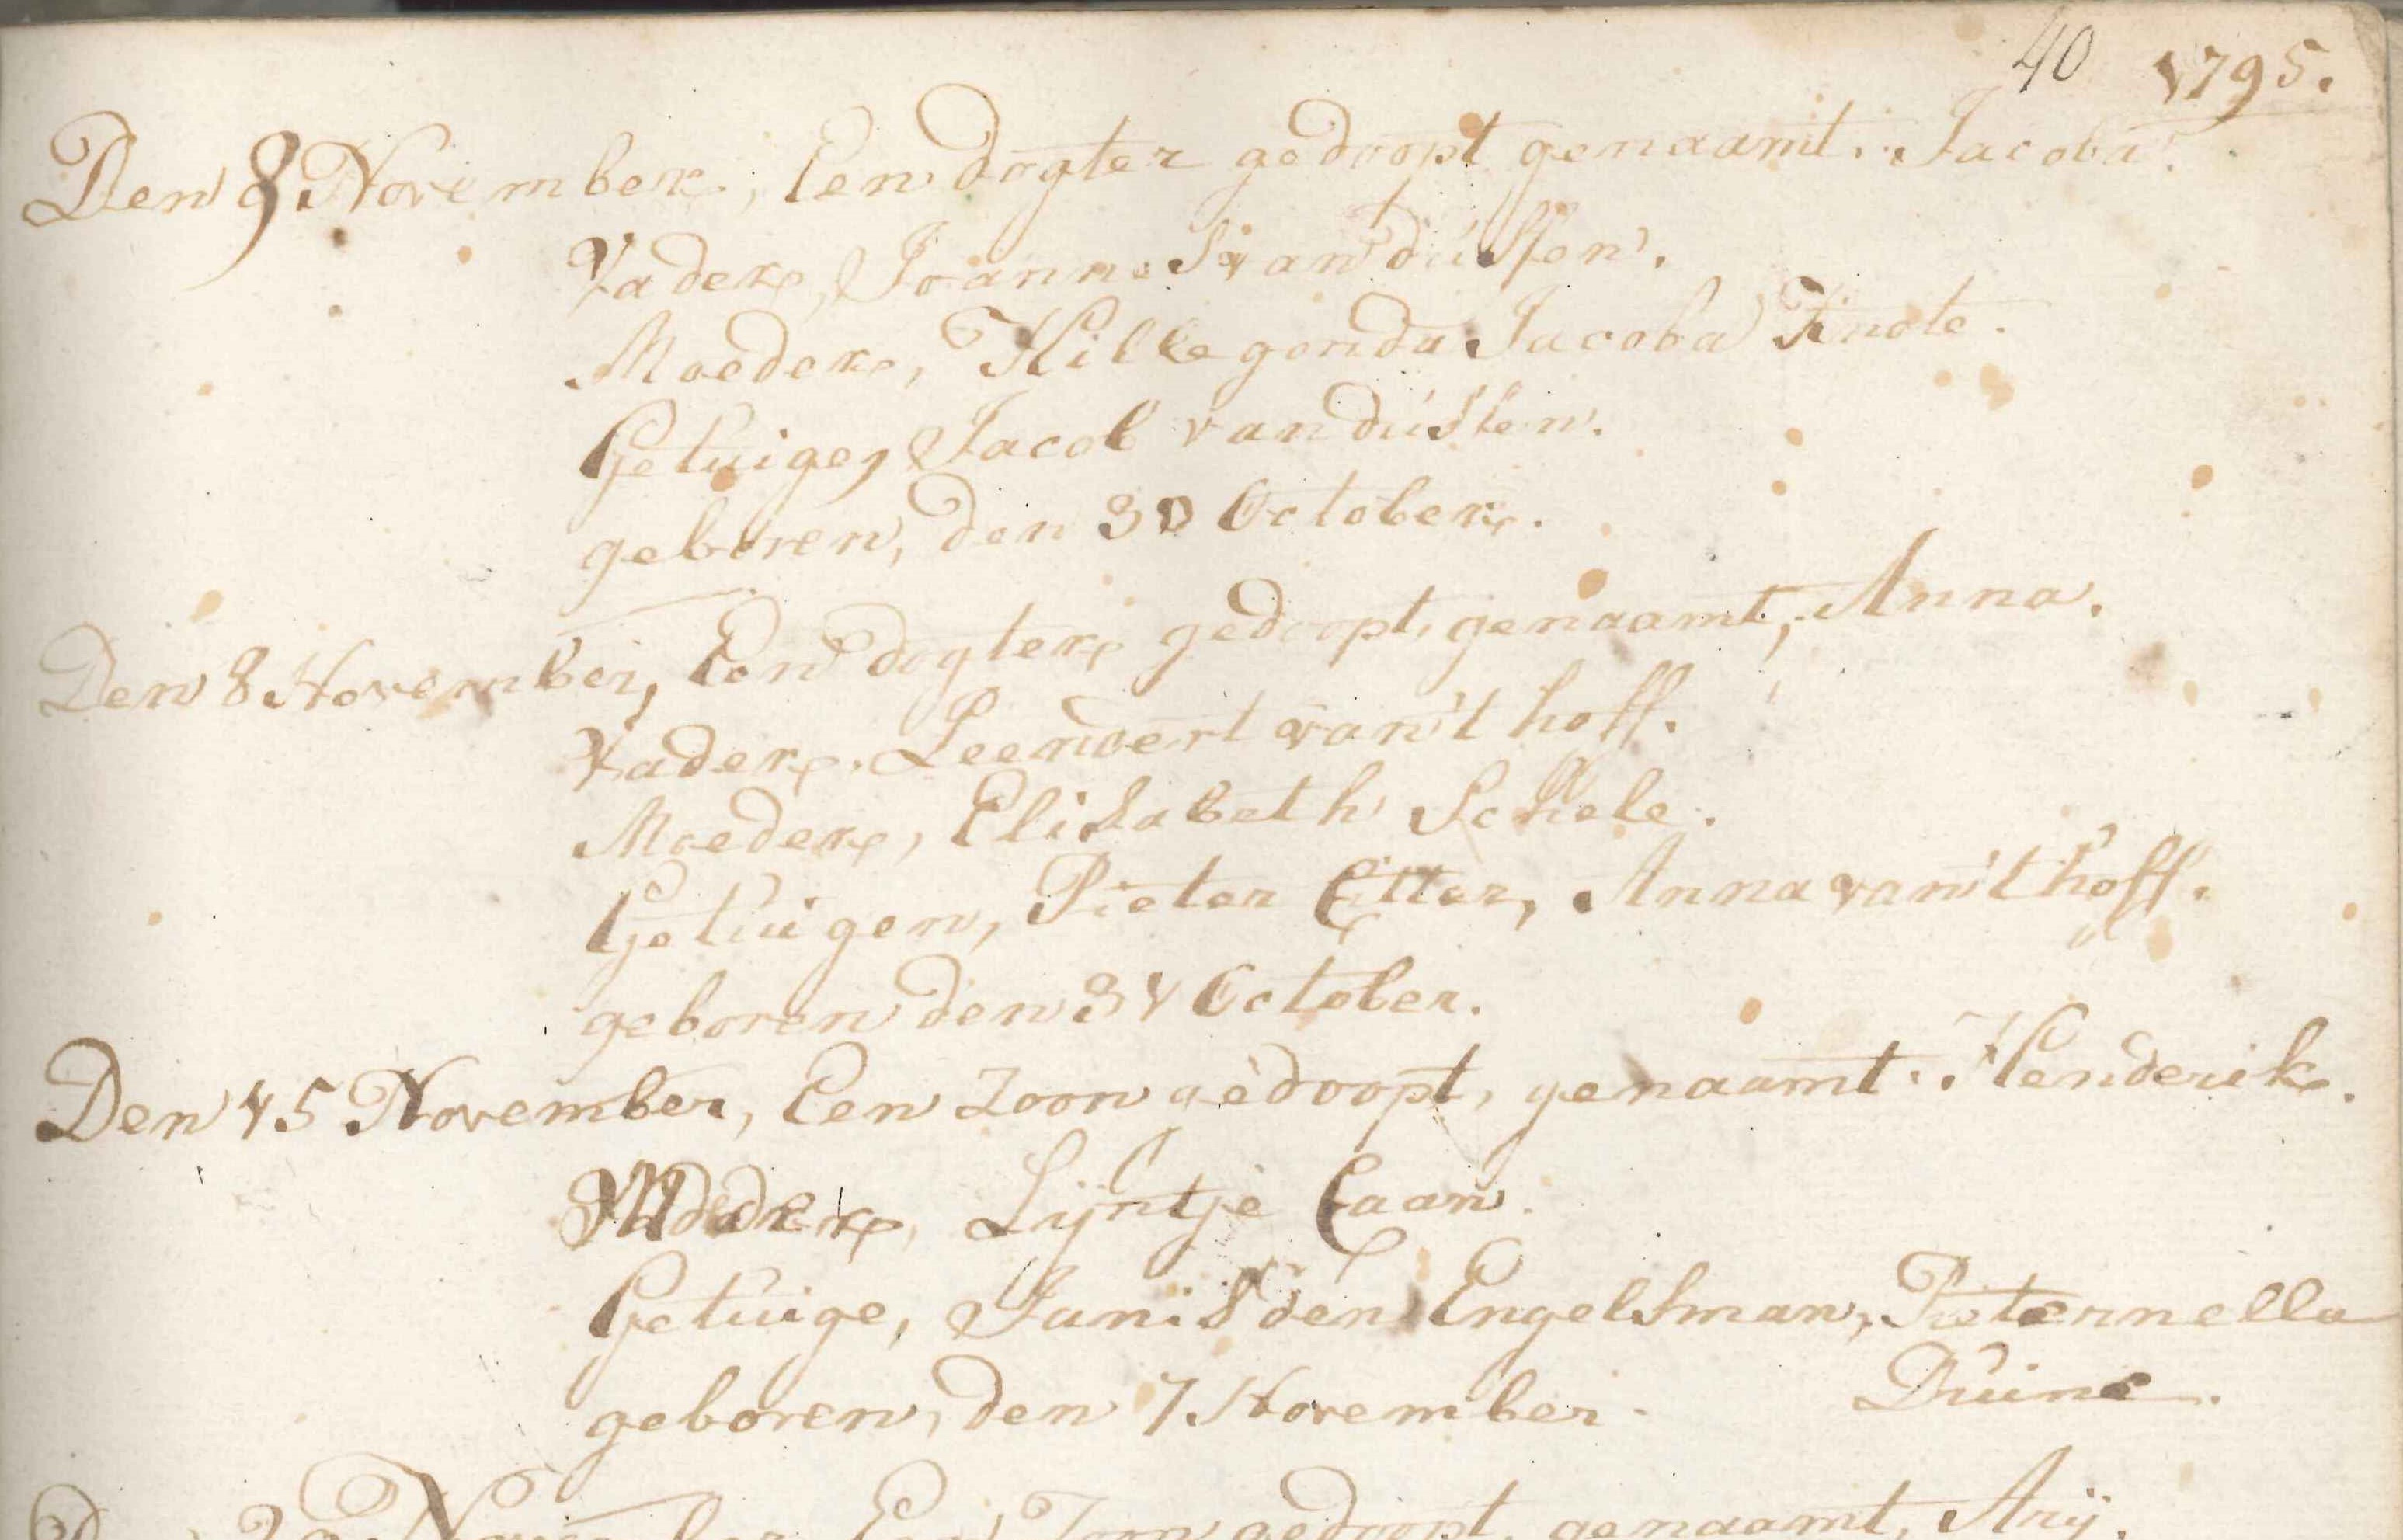 40 1795.
Den 8 November, Een dogter gedoopt genaamt. Jacoba.
Vader, Joannis van dússen.
Moeder, Hillegonda Jacoba Knote.
Getuige, Jacob van dússen.
geboren, den 30 October.
Den 8 November, Een dogter gedoopt, genaamt, Anna.
Vader, Leendert van't hoff.
Moeder, Elisabeth Schele.
Getuigen, Pieter Etter, Anna van't hoff.
geboren den 31 October.
Den 15 November, Een Zoon gedoopt, genaamt. Henderik.
Moeder, Lijntje Caan.
Getuige, Janis den Engelsman, Pieternella
geboren, den 7 November. Duine.
November Een Zoon gedoopt, genaamt, Arij.